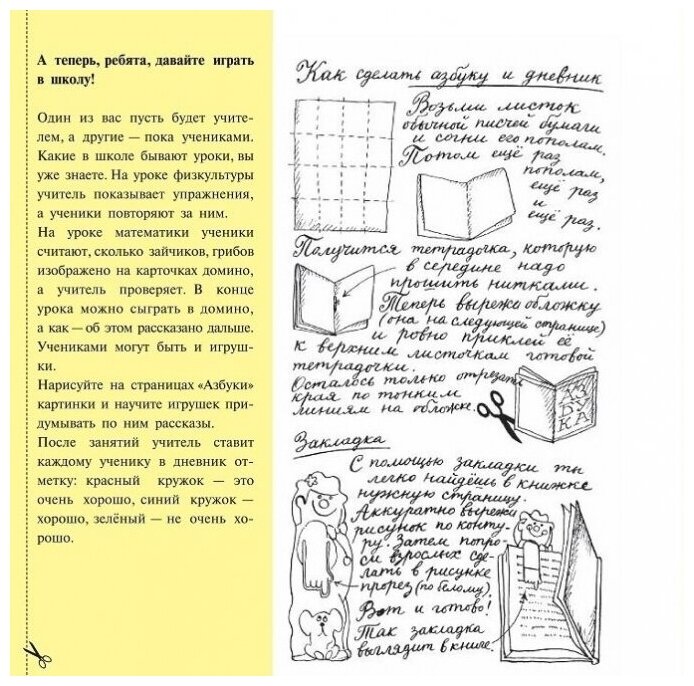 А теперь, ребята, давайте играть
в школу!
Один из вас пусть будет учите-
лем, а другие — пока учениками.
Какие в школе бывают уроки, вы
уже знаете. На уроке физкультуры
учитель показывает упражнения,
а ученики повторяют за ним.
На уроке математики ученики
считают, сколько зайчиков, грибов
изображено на карточках домино,
а учитель проверяет. В конце
урока можно сыграть в домино,
а как — об этом рассказано дальше.
Учениками могут быть и игруш-
ки.
Нарисуйте на страницах «Азбуки»
картинки и научите игрушек при-
думывать по ним рассказы.
После занятий учитель ставит
каждому ученику в дневник от-
метку: красный кружок — это
очень хорошо, синий кружок —
хорошо, зелёный — не очень хо-
рошо.
Как сделать азбуку и дневник
Возьми листок
обычной писчей бумаги
и согни его пополам.
Потом ещё раз
пополам,
ещё раз
и
ещё раз.
Получится тетрадочка, которую
в середине надо
прошить нитками.
Теперь вырежи обложку
(она на следующей странице)
и ровно приклей её
к верхним листочкам готовой
тетрадочки.
Осталось только отрезать
края по тонким
линиям на обложке.
АЗ
БУ
КА
Закладка
С помощью закладки ты
легко найдёшь в книжке
нужную страницу.
Аккуратно вырежи
рисунок по конту-
ру. Затем попро-
си взрослых сде-
лать в рисунке
прорез (по белому).
Вот и готово!
Так закладка
выглядит в книге.